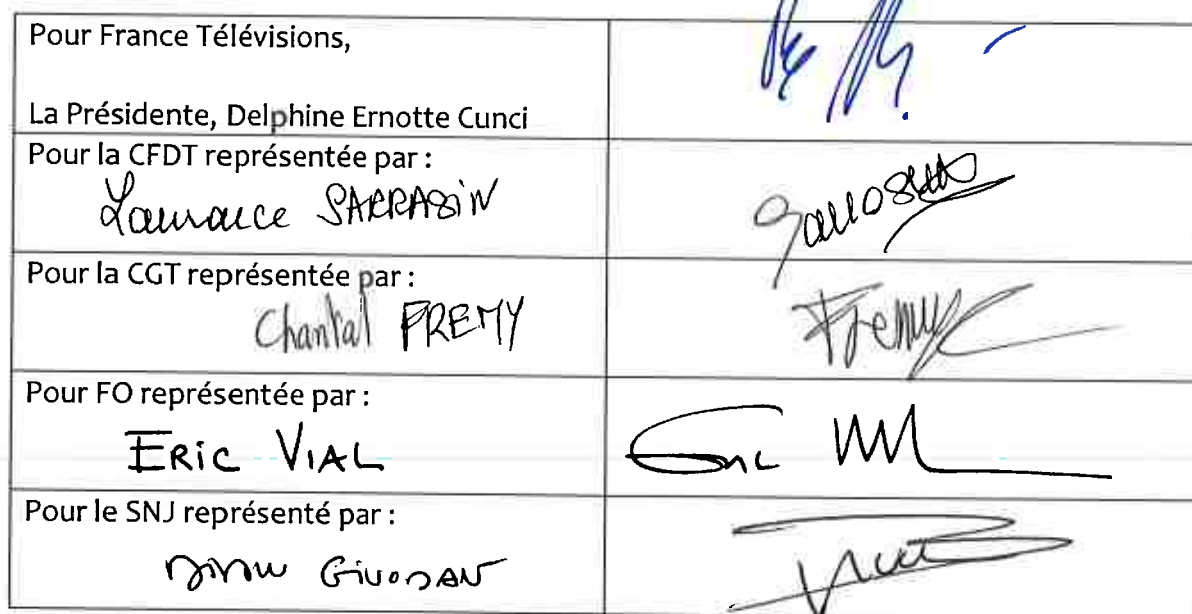 Pour France Télévisions,
La Présidente, Delphine Ernotte Cunci
Pour la CFDT représentée par :
Laurance SARRASIN
Pour la CGT représentée par :
Chantal FREMY
Fremy
Pour FO représentée par :
ERIC VIAL
Eric
Pour le SNJ représenté par :
GIVODAN